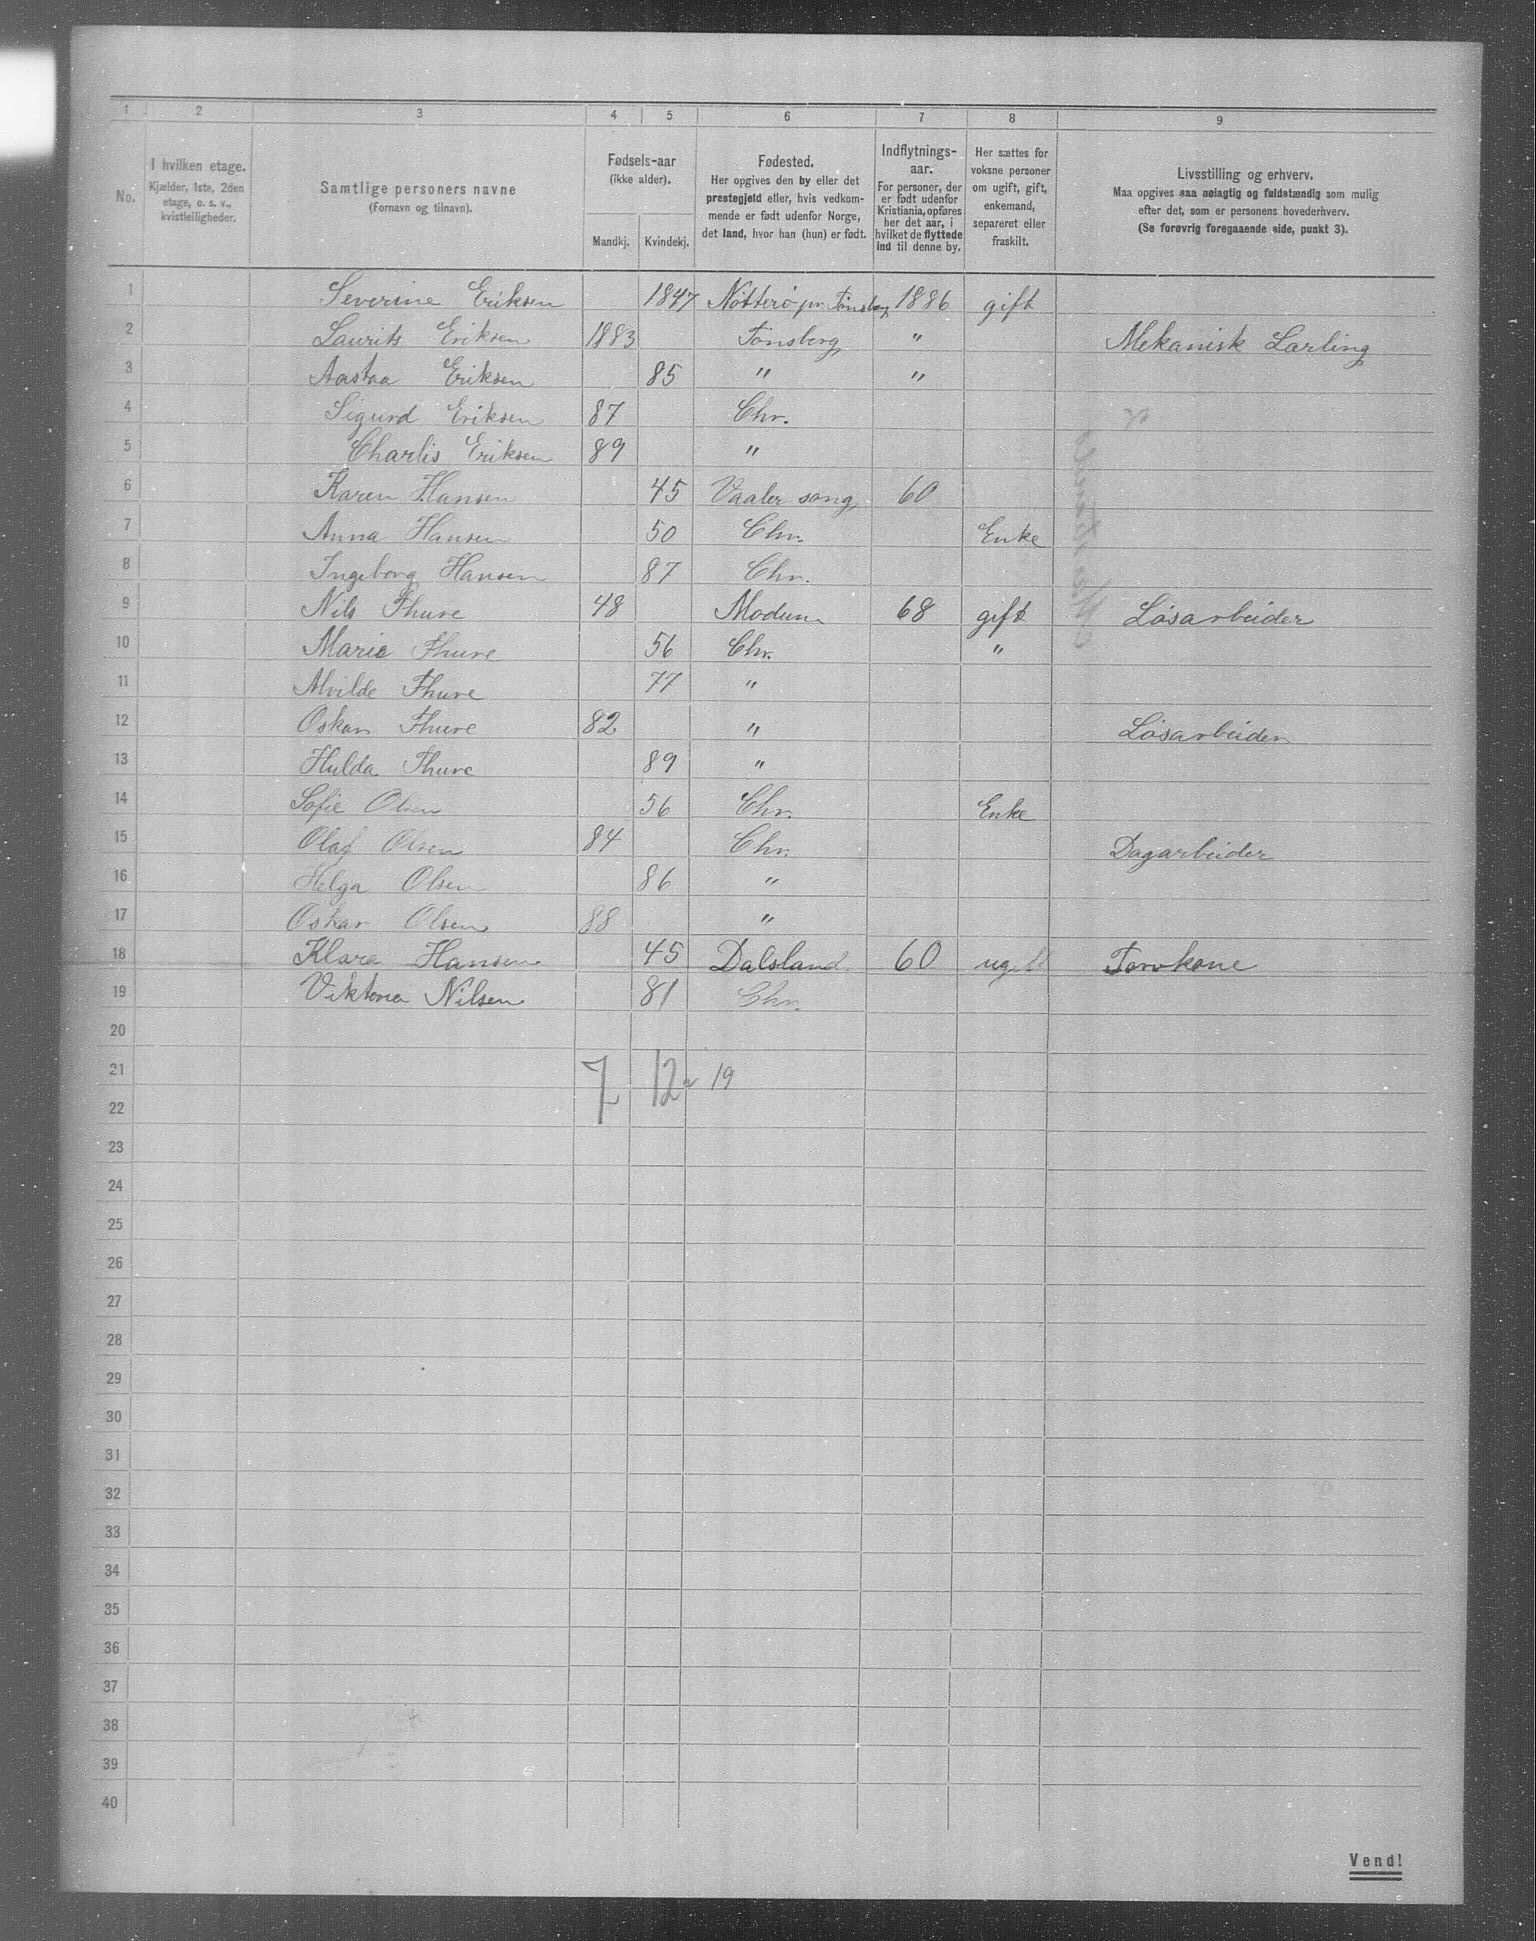 1 2 3 4 5 6 7 8 9
No.
I hvilken etage.
Kjælder, 1ste, 2den
etage, o. s. v.,
kvistleiligheder.
Samtlige personers navne
(Fornavn og tilnavn).
Fødsels-aar
(ikke alder).
Mandkj. Kvindekj.
Fødested.
Her opgives den by eller det
prestegjeld eller, hvis vedkom-
mende er født udenfor Norge,
det land, hvor han (hun) er født.
Indflytnings-
aar.
For personer, der
er født udenfor
Kristiania, opføres
her det aar, i
hvilket de flyttede
ind til denne by.
Her sættes for
voksne personer
om ugift, gift,
enkemand,
separeret eller
fraskilt.
Livsstilling og erhverv.
Maa opgives saa nøiagtig og fuldstændig som mulig
efter det, som er personens hovederhverv.
(Se forøvrig foregaaende side, punkt 3).
1 Severine Eriksen 1847 Nötterö pr. Tönsberg 1886 gift
2 Laurits Eriksen 1883 Tönsberg " Mekanisk Lærling
3 Aastaa Eriksen 85 " "
4 Sigurd Eriksen 87 Chr.
5 Charlis Eriksen 89 "
6 Karen Hansen 45 Vaaler 60
7 Anna Hansen 50 Chr. Enke
8 Ingeborg Hansen 87 Chr.
9 Nils Thure 48 Modum 68 gift Løsarbeider
10 Marie Thure 56 Chr. "
11 Alvilde Thure 77 "
12 Oskar Thure 82 " Løsarbeider
13 Hulda Thure 89 "
14 Sofie Olsen 56 Chr. Enke
15 Olaf Olsen 84 Chr. Dagarbeider
16 Helga Olsen 86 "
17 Oskar Olsen 88 "
18 Klara Hansen 45 Dalsland 60 ugift Torvkone
19 Viktoria Nilsen 81 Chr.
20
21 7 12 19
22
23
24
25
26
27
28
29
30
31
32
33
34
35
36
37
38
39
40
Vend!